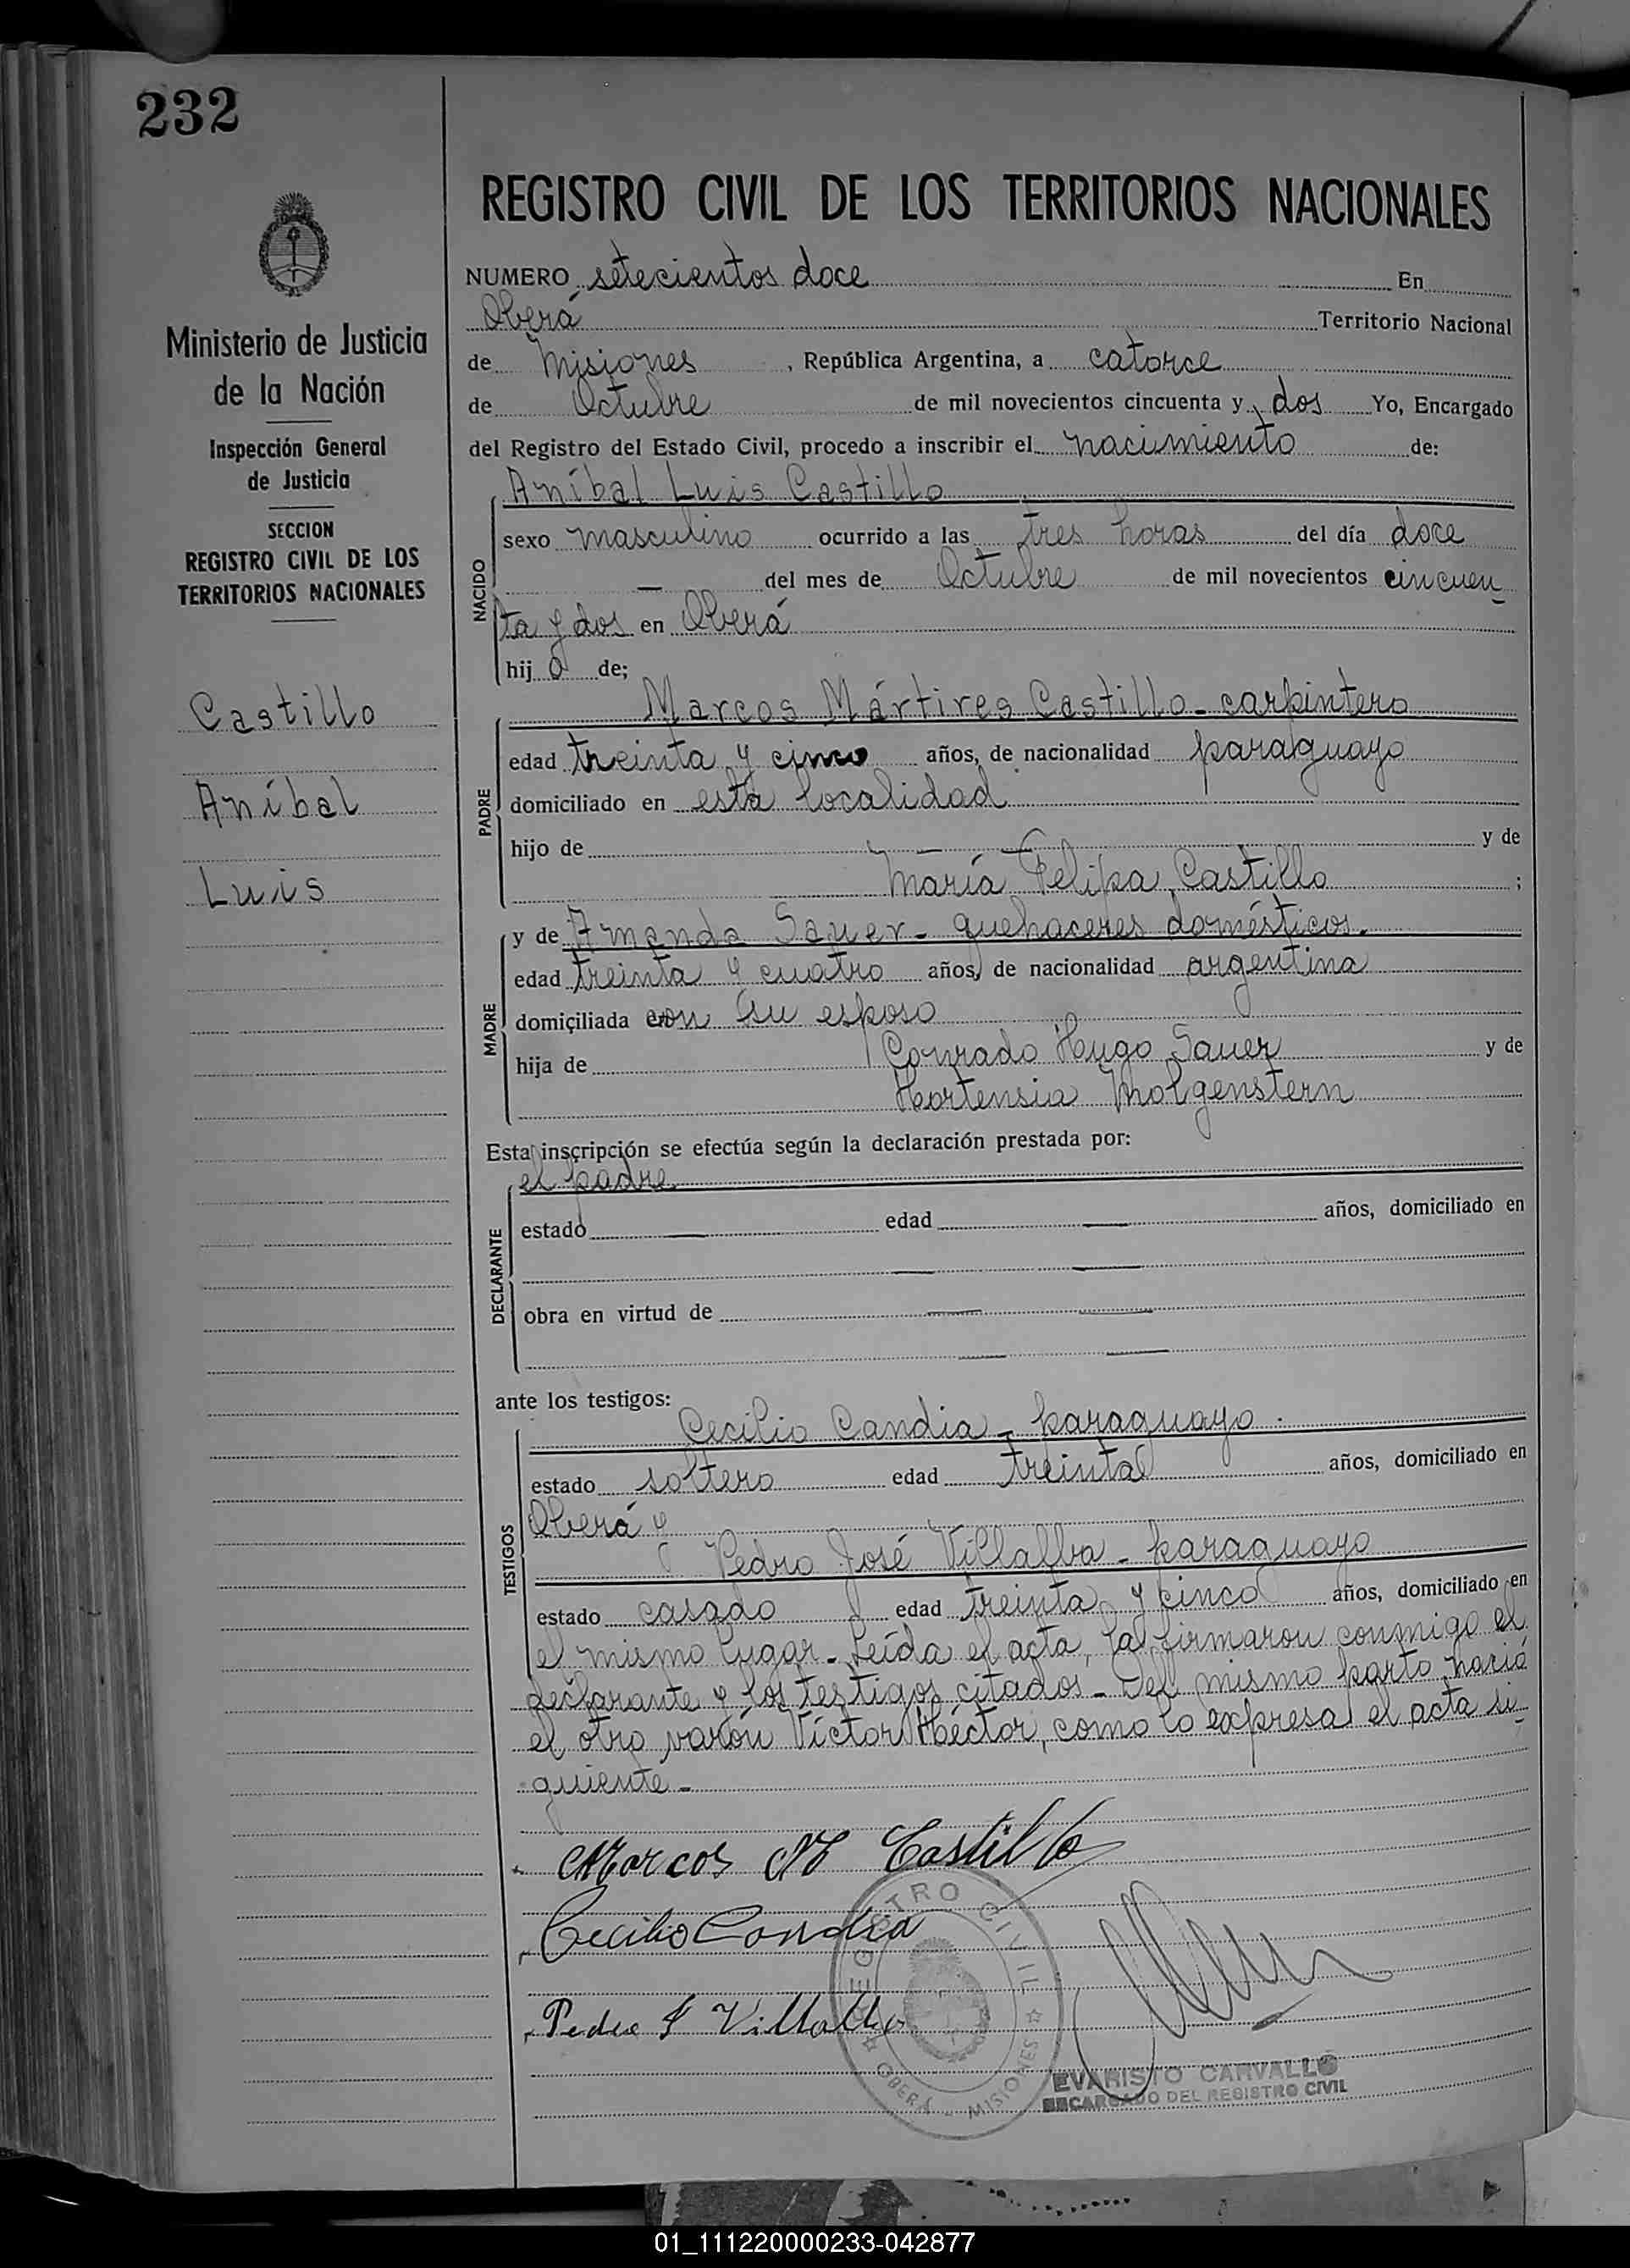 232
Ministerio de Justicia
de la Nación
Inspección General
de Justicia
SECCION
REGISTRO CIVIL DE LOS
TERRITORIOS NACIONALES
Castillo
Aníbal
Luis
REGISTRO CIVIL DE LOS TERRITORIOS NACIONALES
NUMERO setecientos doce En
Oberá Territorio Nacional
de Misiones, República Argentina, a catorce
de Octubre de mil novecientos cincuenta y dos Yo, Encargado
del Registro del Estado Civil, procedo a inscribir el nacimiento de:
Aníbal Luis Castillo
NACIDO
sexo masculino ocurrido a las tres horas del día doce
— del mes de Octubre de mil novecientos cincuen
ta y dos en Oberá
hijo de;
Marcos Mártires Castillo - carpintero
PADRE
edad treinta y cinco años, de nacionalidad paraguayo
domiciliado en esta localidad
hijo de — — y de
María Felipa Castillo ;
y de Amanda Sauer - quehaceres domésticos.
MADRE
edad treinta y cuatro años, de nacionalidad argentina
domiciliada con su esposo
hija de Conrado Hugo Sauer y de
Hortensia Morgenstern
Esta inscripción se efectúa según la declaración prestada por:
el padre
DECLARANTE
estado — edad — años, domiciliado en
— —
obra en virtud de — —
— —
ante los testigos:
Cecilio Candia - paraguayo.
TESTIGOS
estado soltero edad treinta años, domiciliado en
Oberá y
Pedro José Villalba - paraguayo
estado casado edad treinta y cinco años, domiciliado en
el mismo lugar. Leída el acta, la firmaron conmigo el
declarante y los testigos citados - Del mismo parto nació
el otro varón Víctor Héctor, como lo expresa el acta si
guiente -
Marcos M Castillo
Cecilio Candia
Pedro J Villalba
REGISTRO CIVIL
OBERÁ - MISIONES
EVARISTO CARVALLO
ENCARGADO DEL REGISTRO CIVIL
01_111220000233-042877